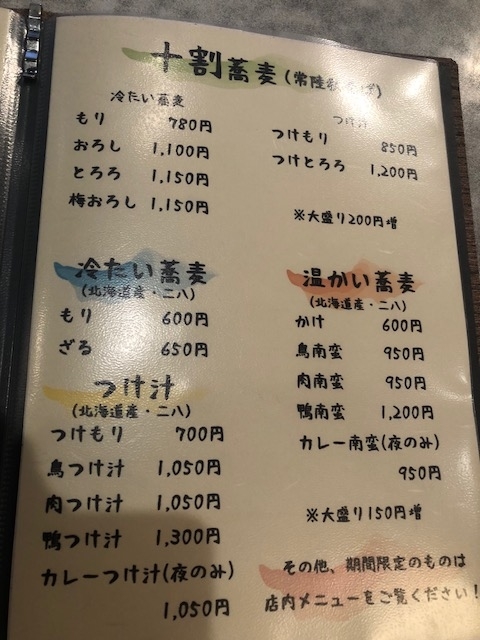 十割蕎麦(常陸秋そば)
冷たい蕎麦
もり 780円
おろし 1,100円
とろろ 1,150円
梅おろし 1,150円
つけ汁
つけもり 850円
つけとろろ 1,200円
※大盛り200円増
冷たい蕎麦
(北海道産・二八)
もり 600円
ざる 650円
つけ汁
(北海道産・二八)
つけもり 700円
鳥つけ汁 1,050円
肉つけ汁 1,050円
鴨つけ汁 1,300円
カレーつけ汁(夜のみ)
1,050円
温かい蕎麦
(北海道産・二八)
かけ 600円
鳥南蛮 950円
肉南蛮 950円
鴨南蛮 1,200円
カレー南蛮(夜のみ)
950円
※大盛り150円増
その他、期間限定のものは
店内メニューをご覧ください!